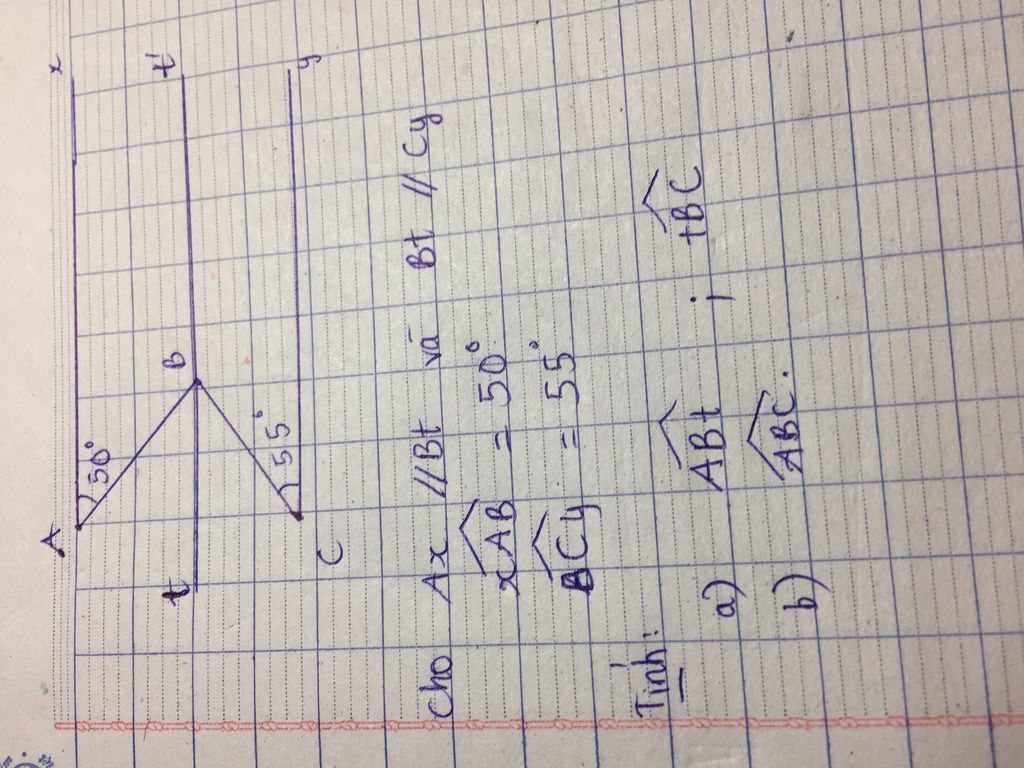 A x
50°
t B t'
55°
C y
Cho Ax // Bt và Bt // Cy
xAB = 50°
BCy = 55°
Tính:
a) ABt ; tBC
b) ABC.